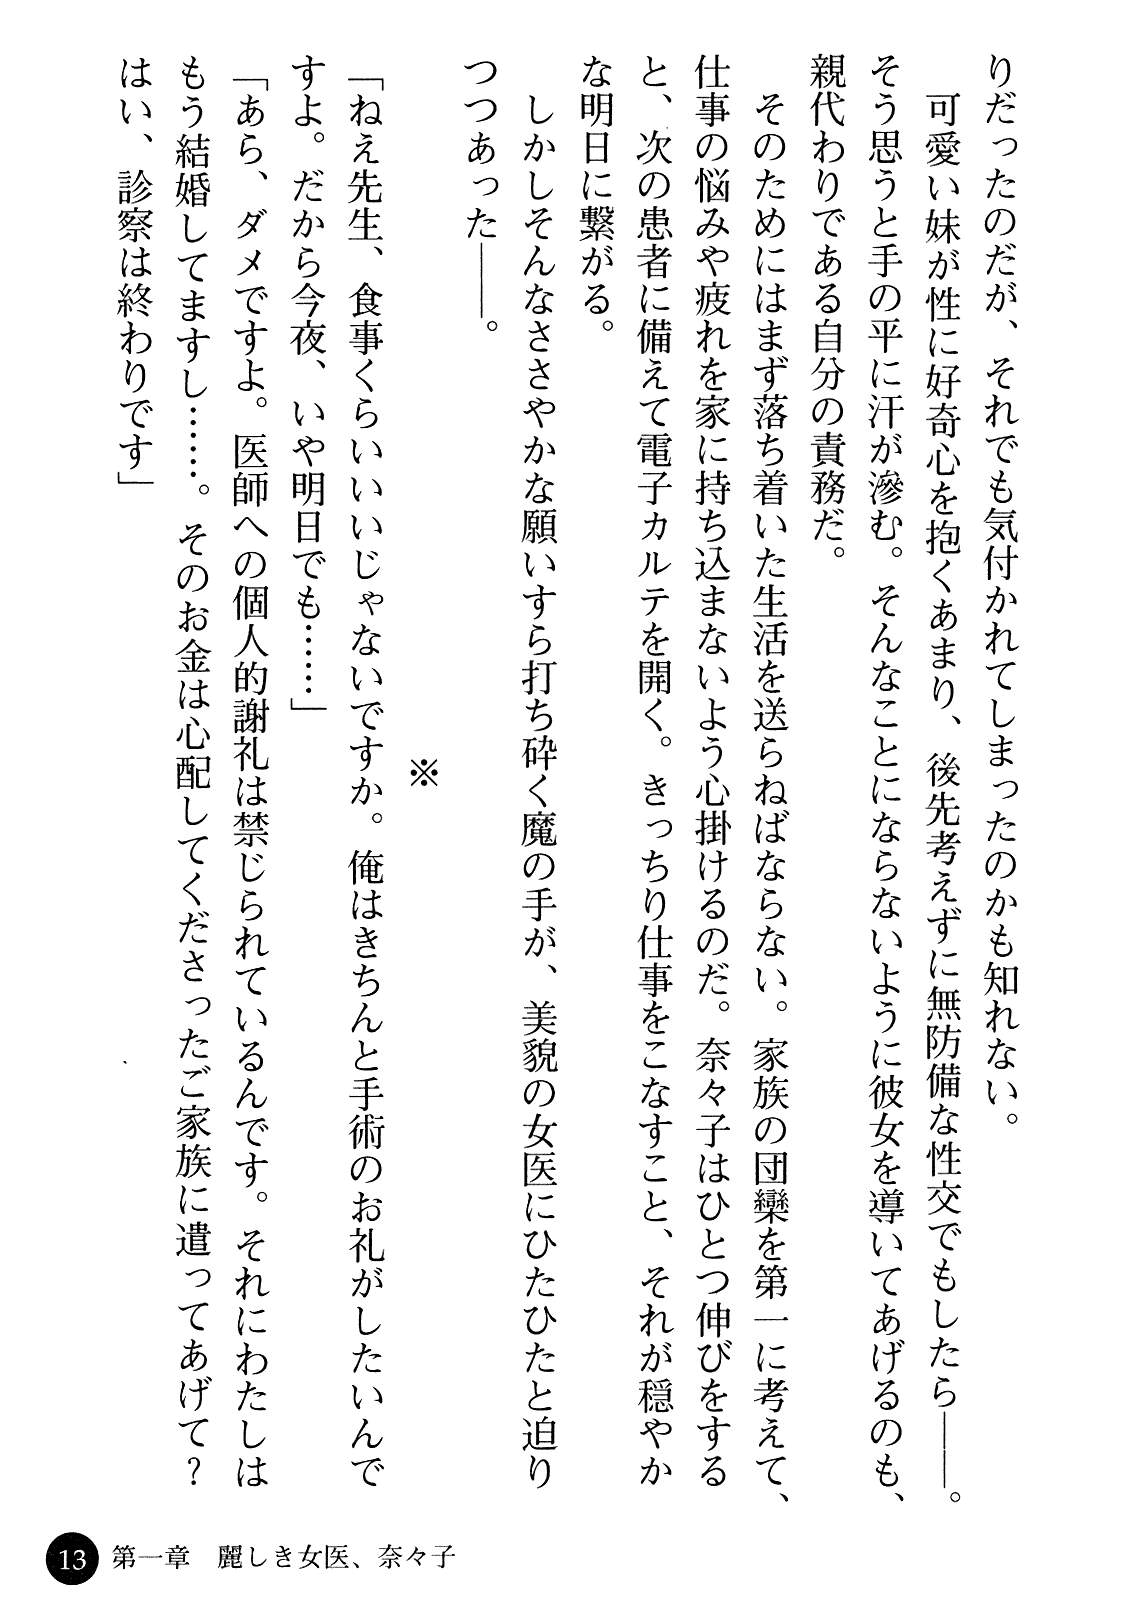 りだったのだが、それでも気付かれてしまったのかも知れない。
可愛い妹が性に好奇心を抱くあまり、後先考えずに無防備な性交でもしたら――。
そう思うと手の平に汗が滲む。そんなことにならないように彼女を導いてあげるのも、
親代わりである自分の責務だ。
そのためにはまず落ち着いた生活を送らねばならない。家族の団欒を第一に考えて、
仕事の悩みや疲れを家に持ち込まないよう心掛けるのだ。奈々子はひとつ伸びをする
と、次の患者に備えて電子カルテを開く。きっちり仕事をこなすこと、それが穏やか
な明日に繋がる。
しかしそんなささやかな願いすら打ち砕く魔の手が、美貌の女医にひたひたと迫り
つつあった――。
※
「ねえ先生、食事くらいいいじゃないですか。俺はきちんと手術のお礼がしたいんで
すよ。だから今夜、いや明日でも……」
「あら、ダメですよ。医師への個人的謝礼は禁じられているんです。それにわたしは
もう結婚してますし……。そのお金は心配してくださったご家族に遣ってあげて?
はい、診察は終わりです」
13 第一章 麗しき女医、奈々子